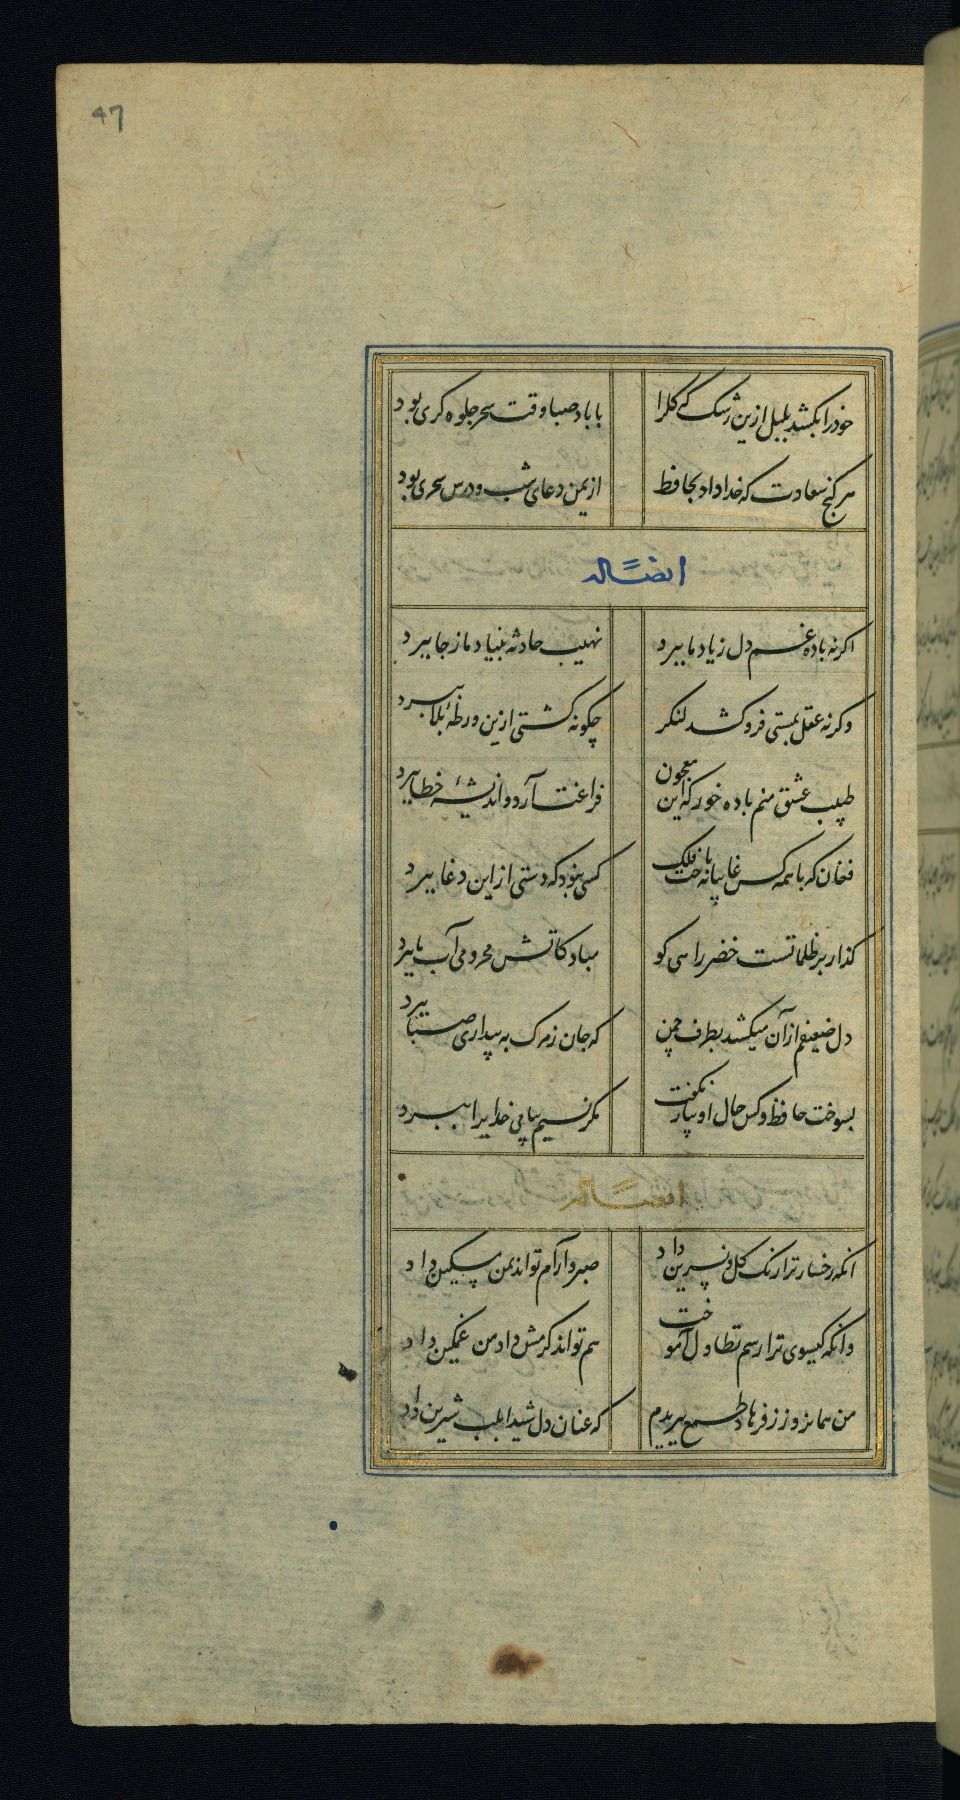 47
خود را بکشد بلبل ازین رشک که گل را	با باد صبا وقت سحر جلوه کری بود
هر کنج سعادت که خدا داد بحافظ	از یمن دعای شب و درس سحری بود
ایضاً له
اکر نه باده غم دل ز یاد ما ببرد	نهیب حادثه بنیاد ما ز جا ببرد
وکر نه عقل بمستی فرو کشد لنکر	چکونه کشتی ازین ورطهٔ بلا ببرد
طبیب عشق منم باده خور که این معجون	فراغت آرد و اندیشهٔ خطا ببرد
فغان که با همه کس غایبانه باخت فلک	کسی نبود که دستی از این دغا ببرد
کذار بر ظلماتست خضر راهی کو	مباد کاتش محرومی آب ما ببرد
دل ضعیفم از آن میکشد بطرف چمن	که جان ز مرک به بیداری صبا ببرد
بسوخت حافظ و کس حال او بیار نکفت	مکر نسیم پیامی خدایرا ببرد
ایضاً له
انکه رخسار ترا رنک کل و نسرین داد	صبر و آرام تواند بمن مسکین داد
وانکه کیسوی ترا رسم تطاول آموخت	هم تواند کرمش داد من غمکین داد
من همانروز ز فرهاد طمع ببریدم	که عنان دل شیدا بلب شیرین داد